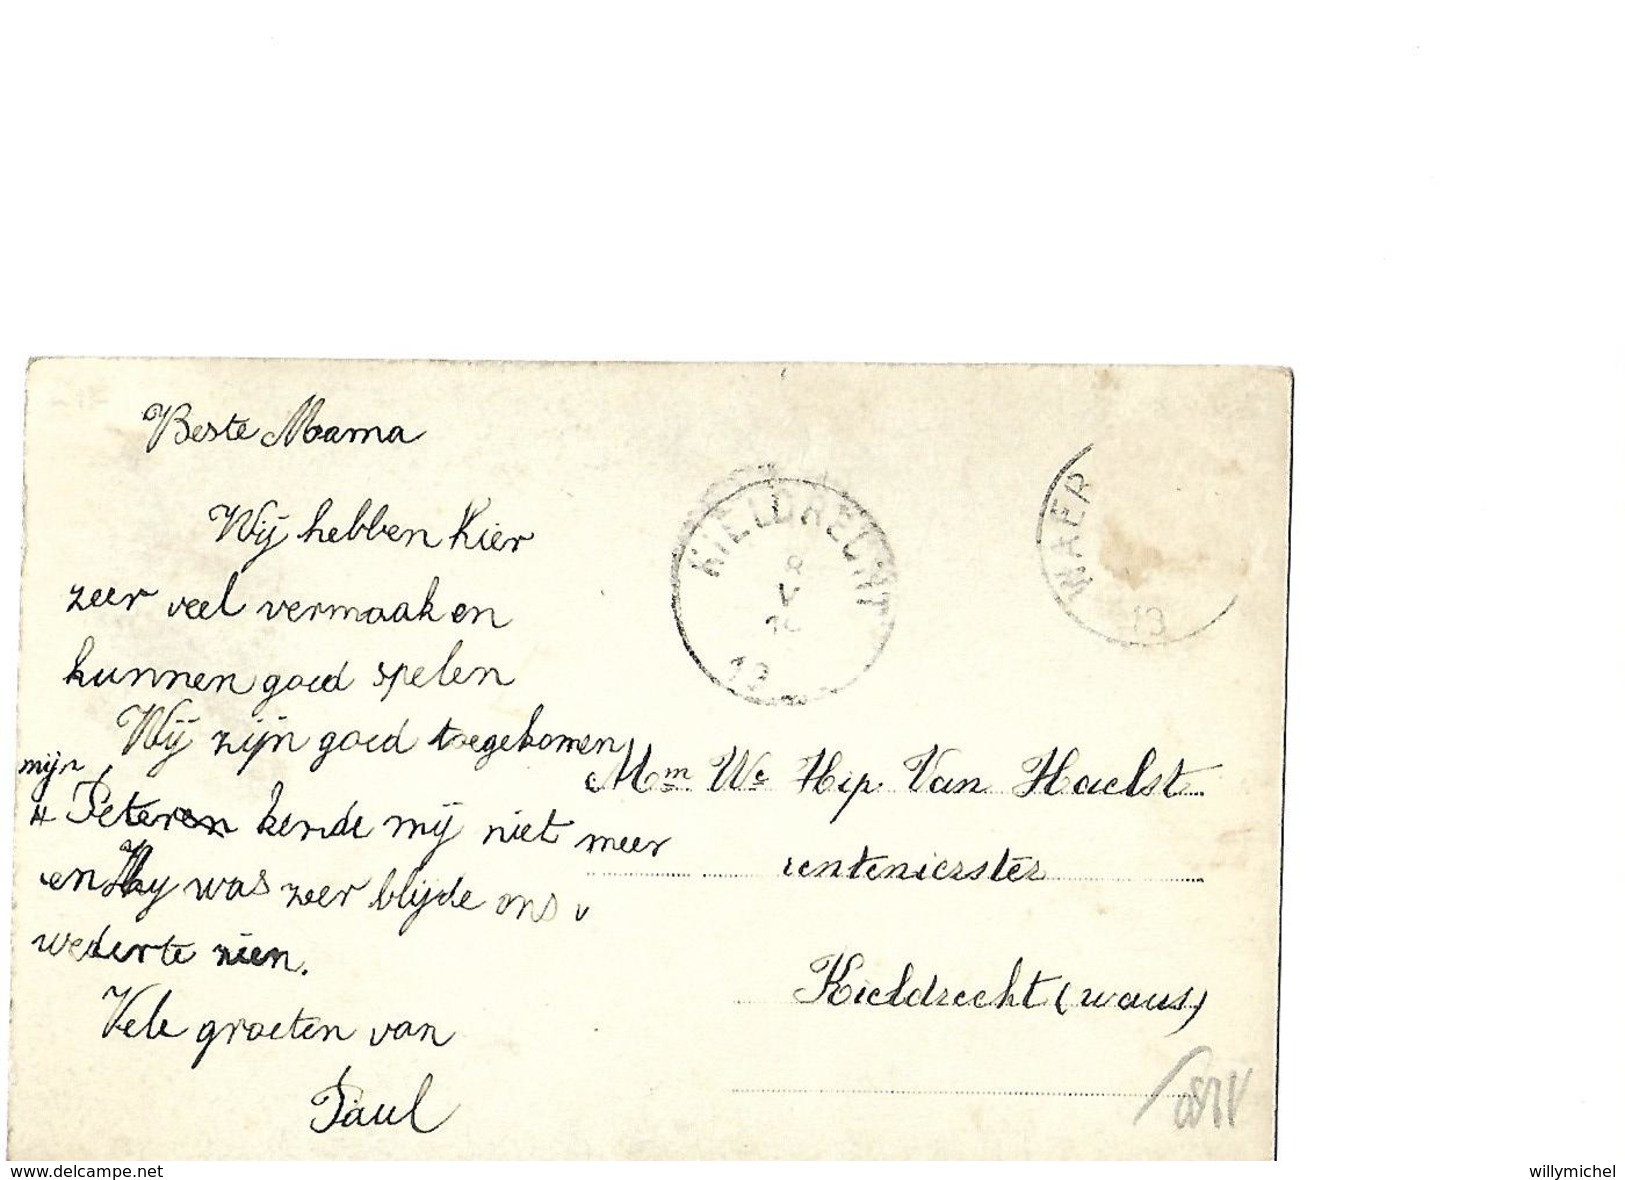 Beste Mama
Wij hebben hier
zeer veel vermaak en
kunnen goed spelen
Wij zijn goed toegekomen
mijn
Peter kende mij niet meer
en Hy was zeer blijde ons
wederte zien.
Vele groeten van
Paul
KIELDRECHT
8
V
12
WAER
13
Mm We Hip. Van Haelst
rentenierster
Kieldrecht (waus)
delcampe.net
willymichel